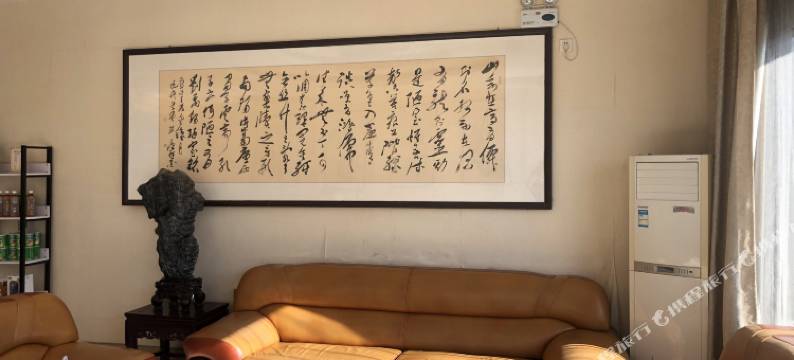 山不在高有僊
則名水不在深
有龍則靈斯
是陋室惟吾德
馨苔痕上階綠
草色入簾青
談笑有鴻儒
往來無白丁可
以調素琴閱金經
無絲竹之亂耳
無案牘之勞形
南陽諸葛廬西
蜀子雲亭孔
子云何陋之有
劉禹錫陋室銘
携程旅行